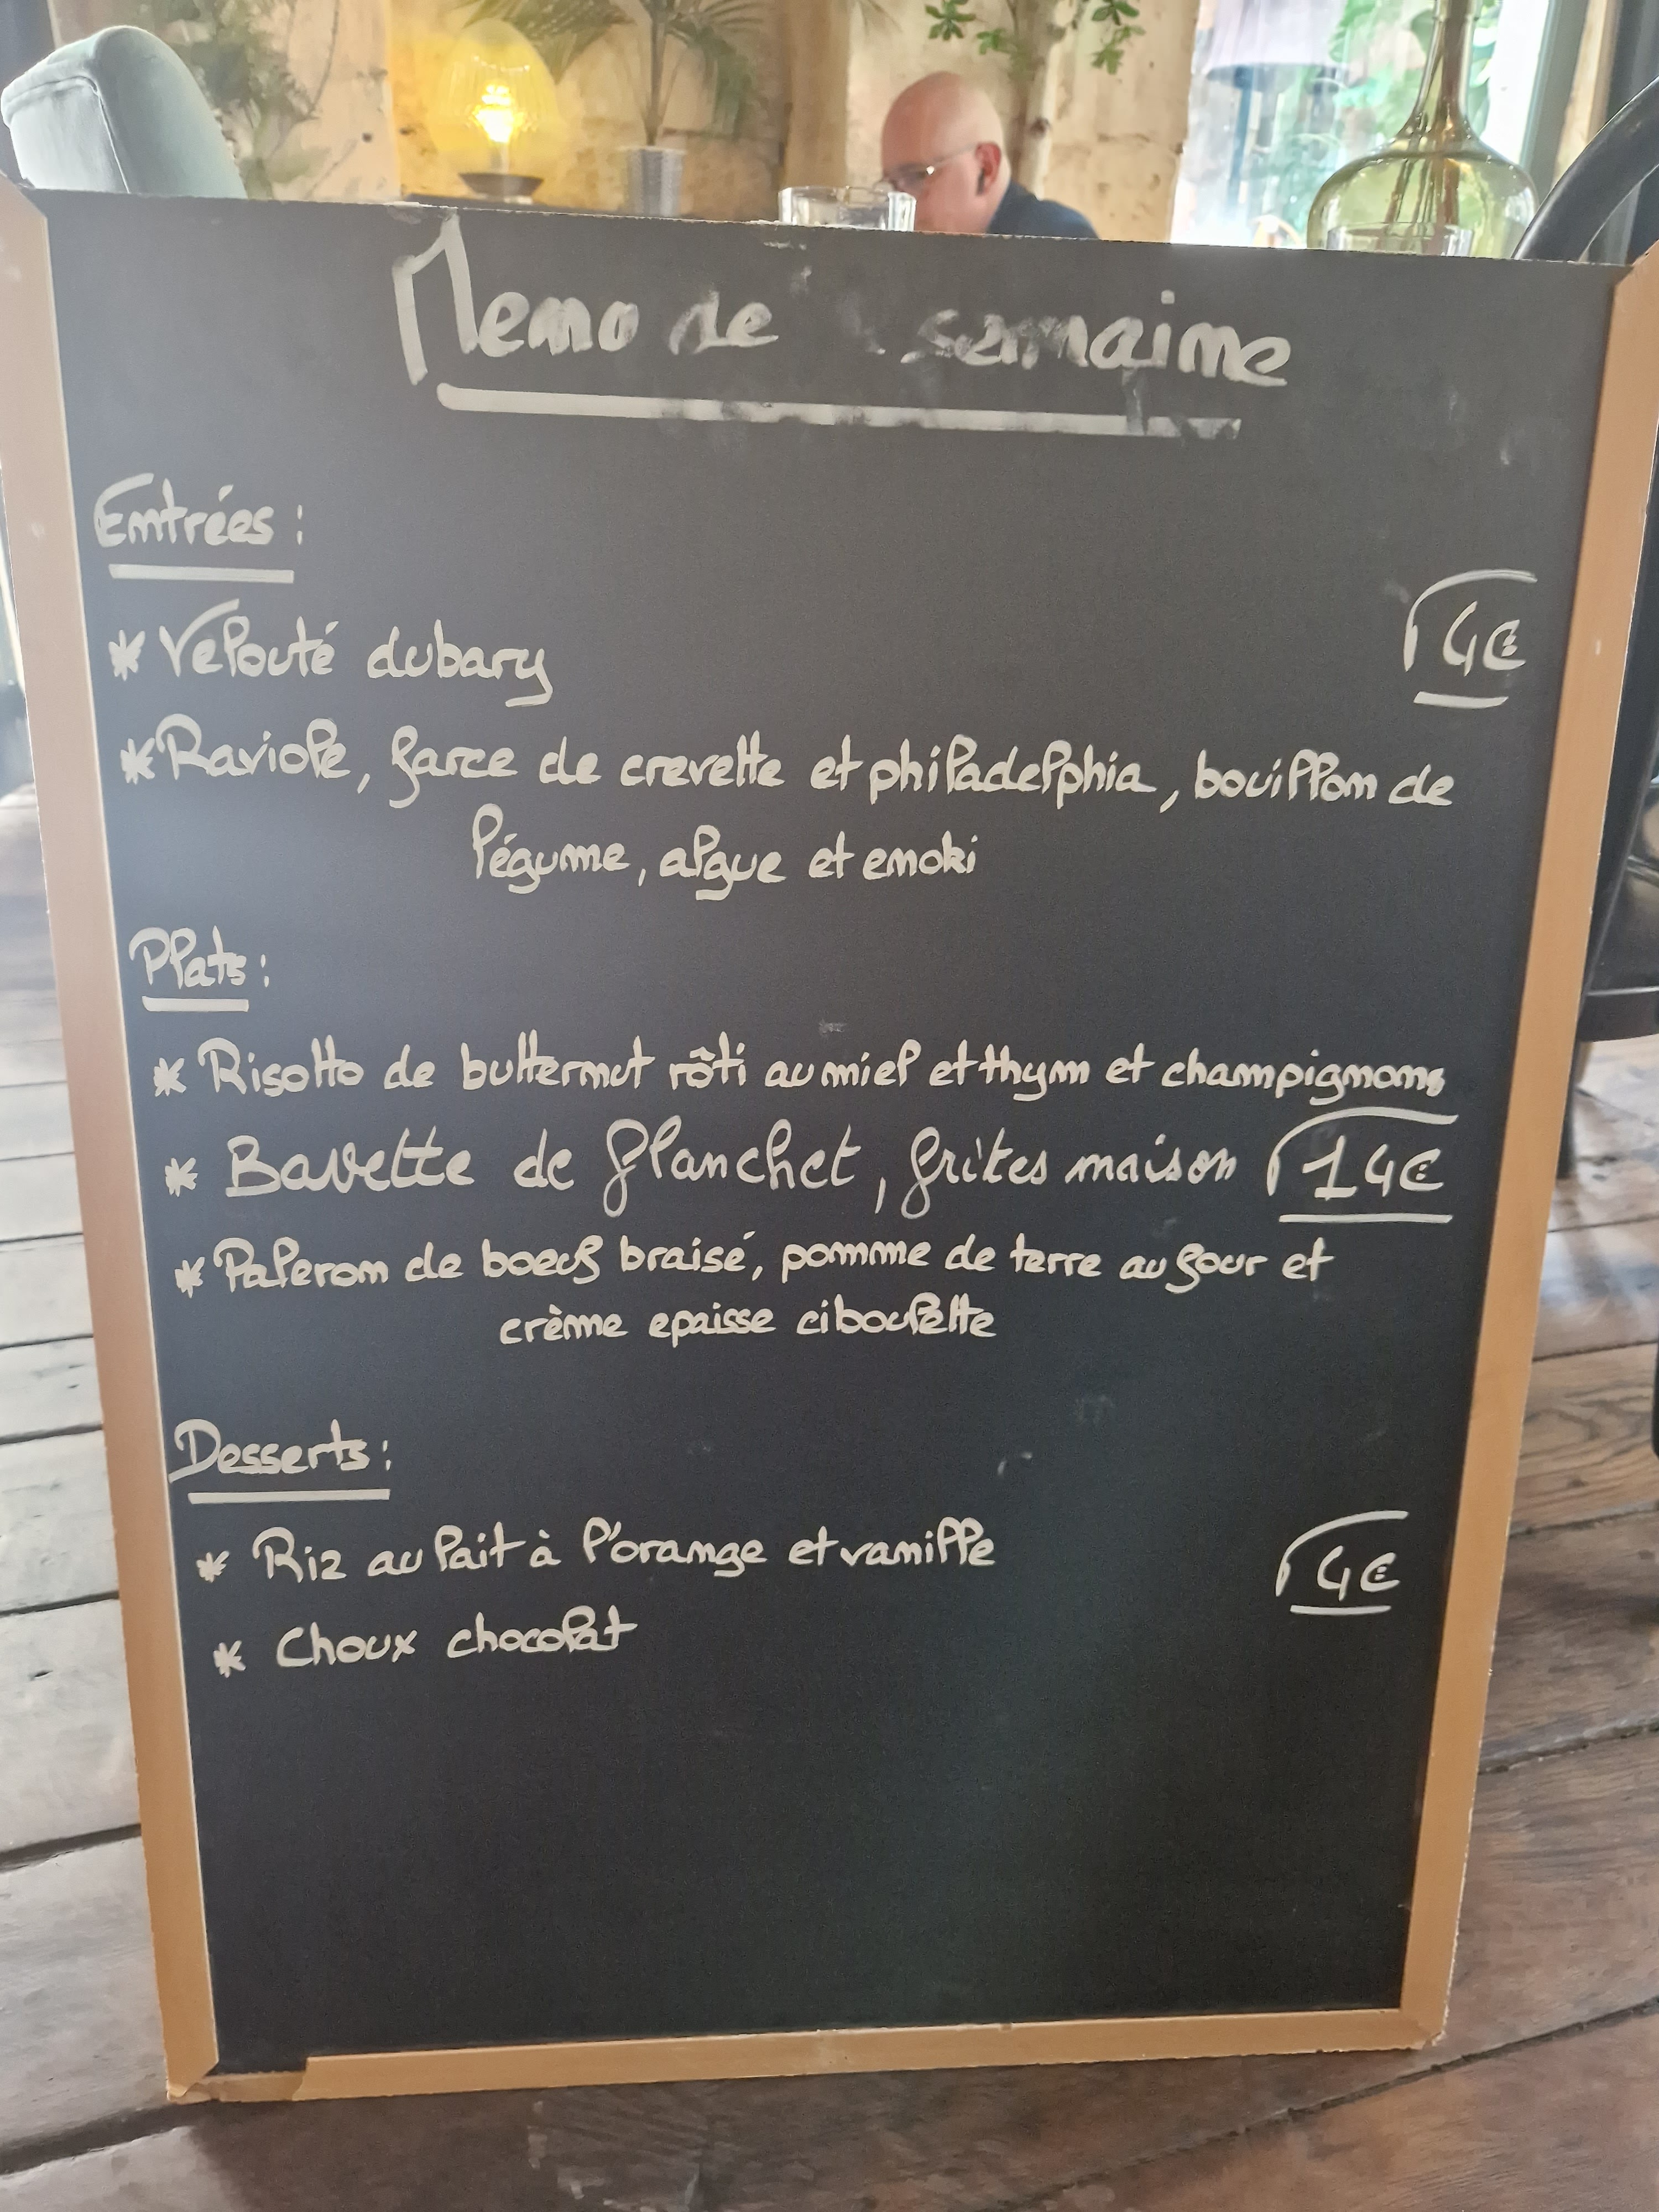 Menu de semaine
Entrées :
* Velouté dubary
4€
* Raviole, farce de crevette et philadelphia, bouillon de
légume, algue et enoki
Plats :
* Risotto de butternut rôti au miel et thym et champignons
* Bavette de flanchet, frites maison 14€
* Paleron de boeuf braisé, pomme de terre au four et
crème epaisse ciboulette
Desserts :
* Riz au lait à l'orange et vanille
4€
* Choux chocolat